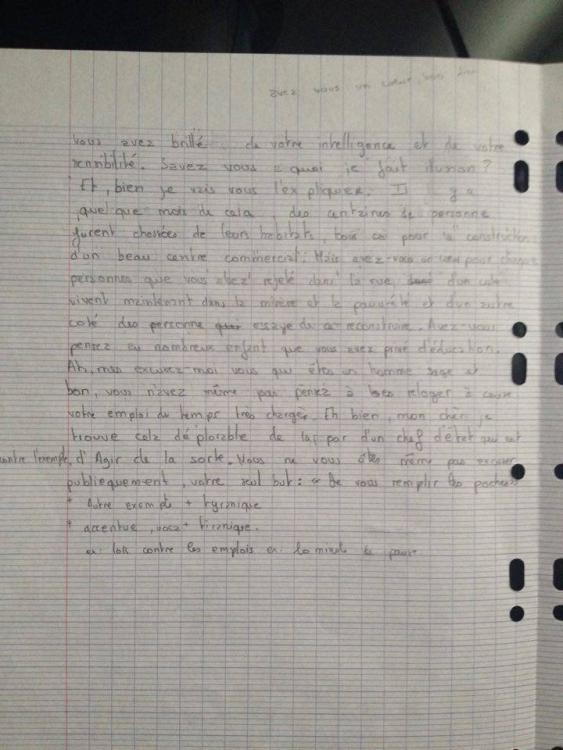 avez vous un
vous avez brillé de votre intelligence et de votre
sensibilité. Savez vous a quoi je fait illusion ?
Et, bien je vais vous l'expliquer. Il y a
quelque mois de cela des centaines de personne
furent chassées de leurs habitats, tout ça pour la construction
d'un beau centre commercial. Mais avez-vous un cœur pour chaque
personnes que vous avez rejeté dans la rue, d'un coté
vivent maintenant dans la misère et la pauvreté et d'un autre
coté des personne essaye de se reconstruire. Avez-vous
pensez au nombreux enfant que vous avez privé d'éducation.
Ah, mais excusez-moi vous qui êtes un homme sage et
bon, vous n'avez même pas pensez à les reloger à cause
votre emploi du temps très chargée. Eh bien, mon cher je
trouve cela déplorable de la part d'un chef d'état qui est
contre l'exemple, d'Agir de la sorte. Vous ne vous êtes même pas excuser
publiequement, votre seul but : de vous remplir les poches
* Autre exemple + tyrannique
* accentue, voca + tirannique.
ex: lois contre les emplois